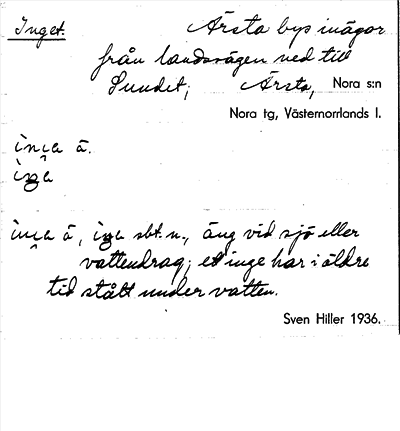 Inget. Årsta bys inägor
från landsvägen ned till
Sundet; Årsta, Nora s:n
Nora tg, Västernorrlands l.
ìnɩa ā.
ìŋa
ìnɩa ā, ìŋa sbt. n., äng vid sjö eller
vattendrag; et inge har i äldre
tid stått under vatten.
Sven Hiller 1936.